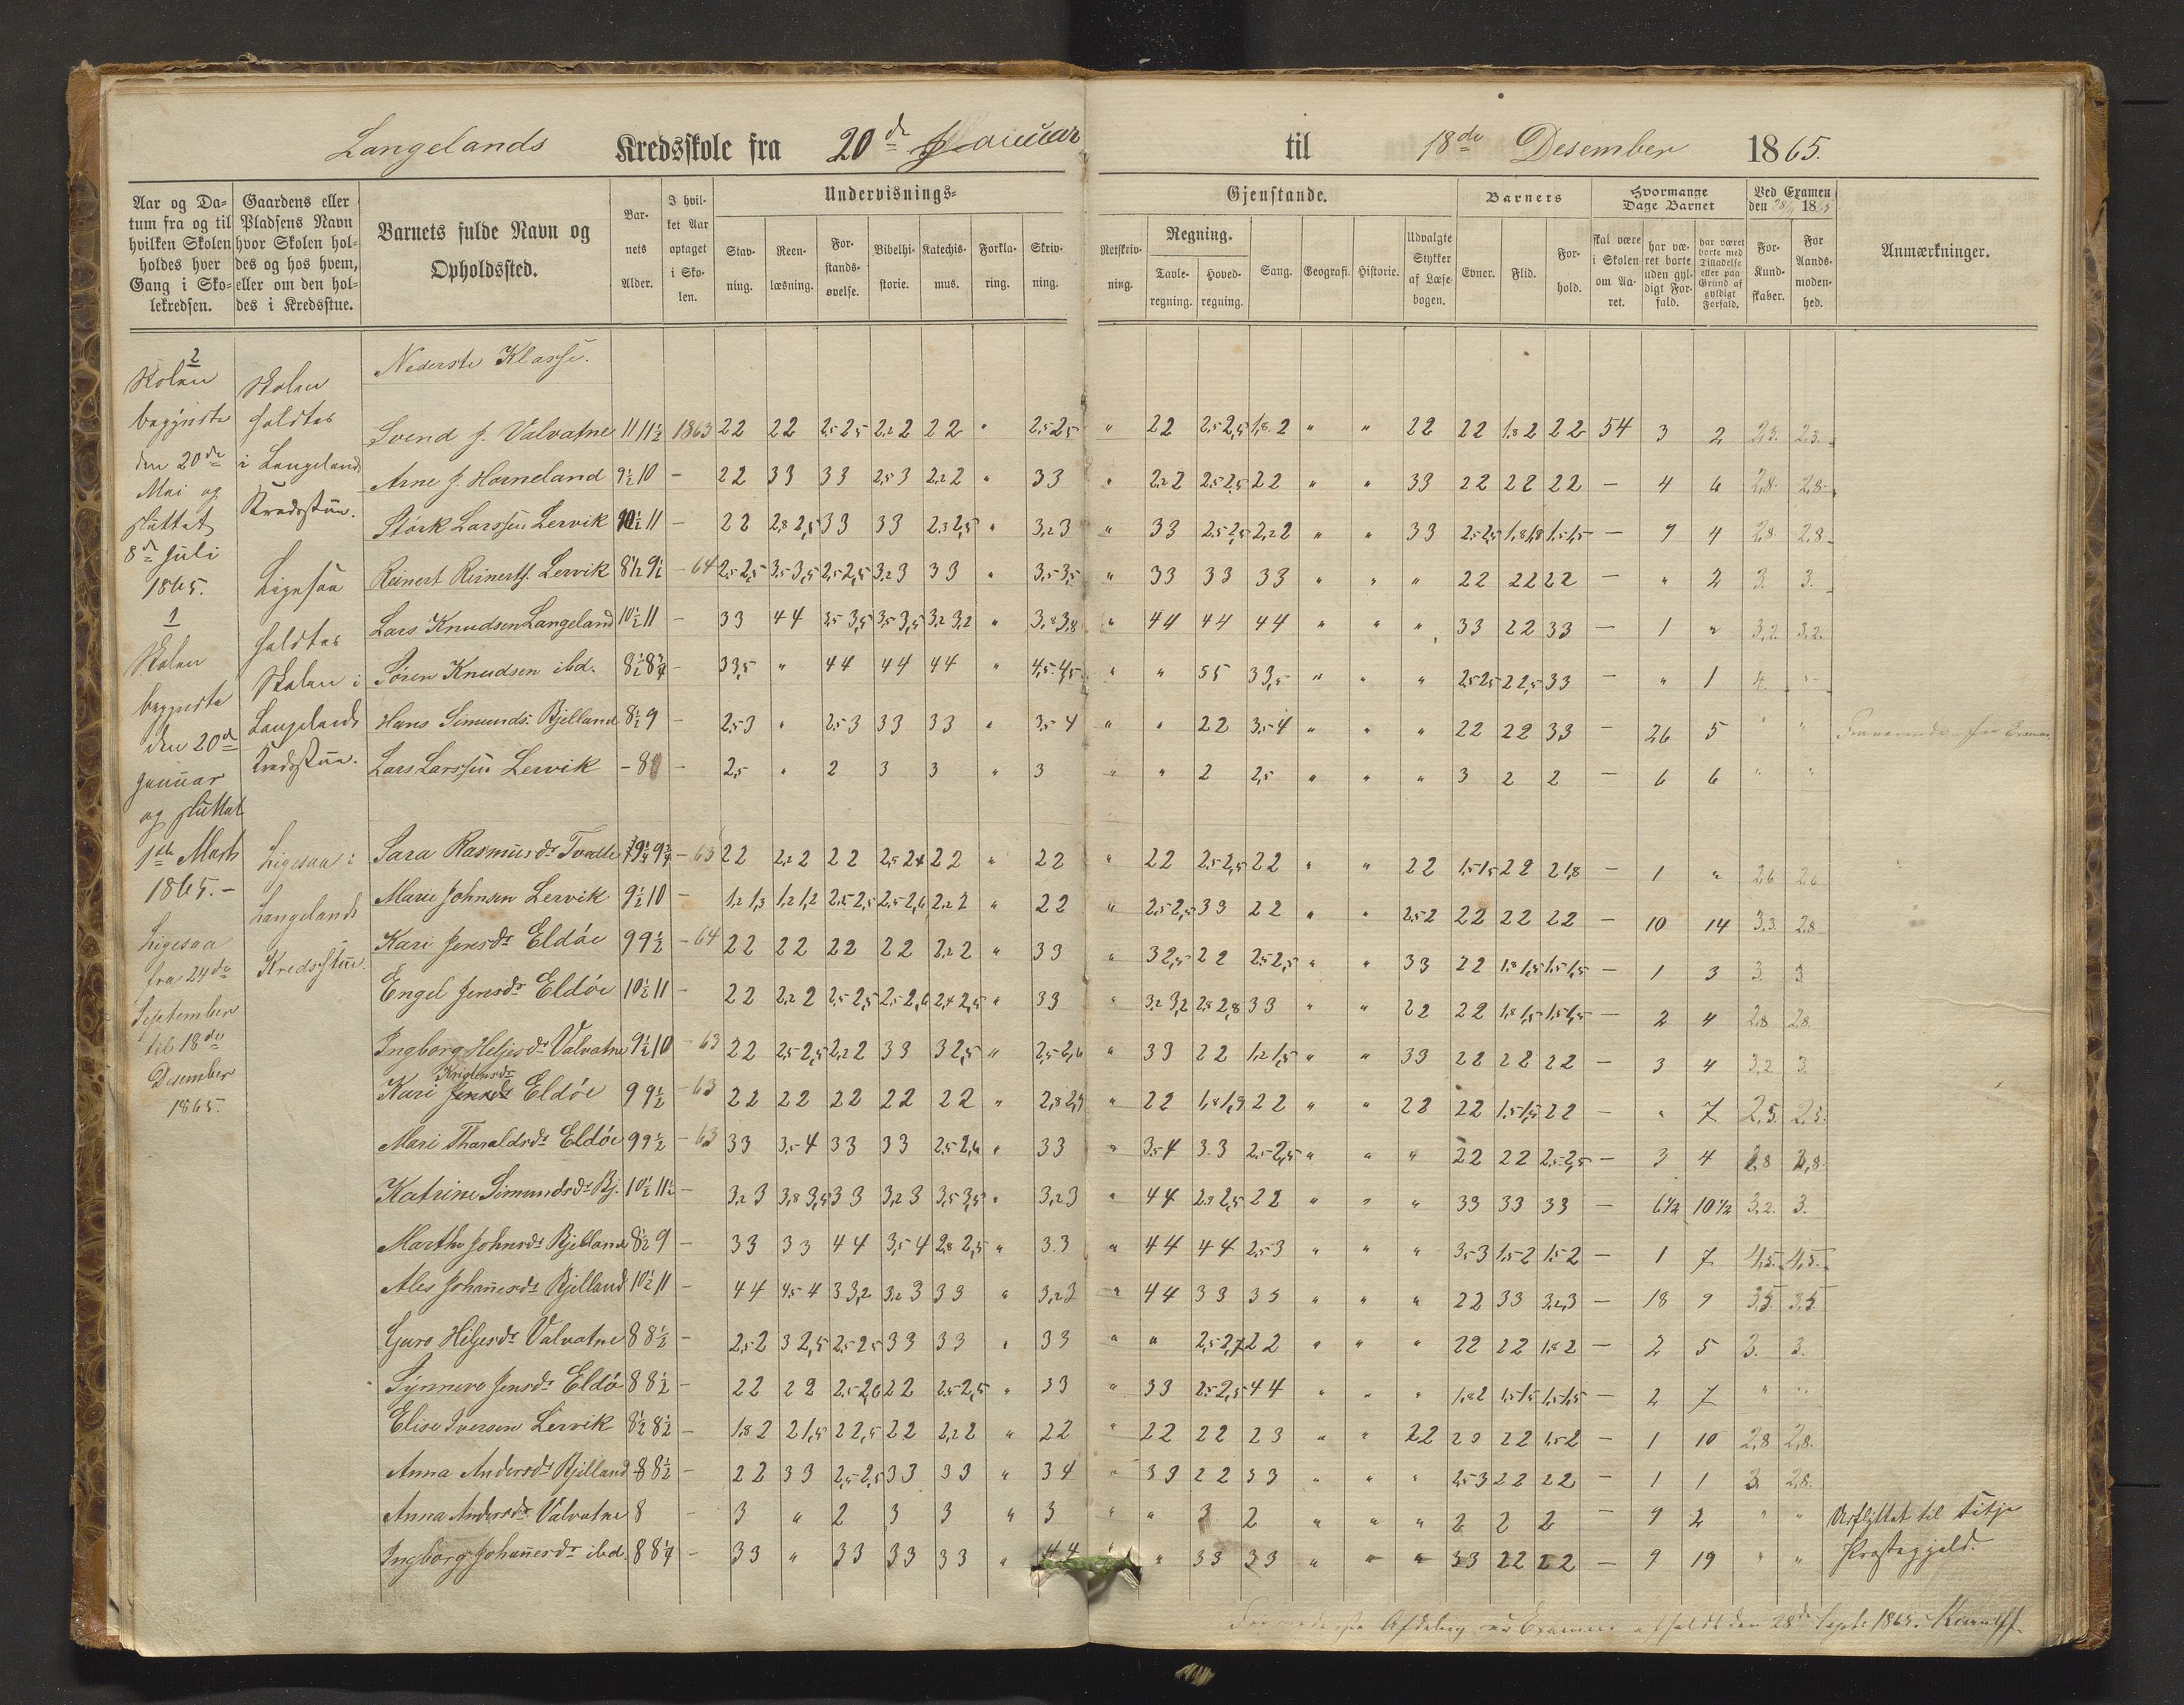 Langelands Kredsskole fra 20de Januar til 18de Desember 1865.
Aar og Da-
tum fra og til
hvilken Skolen
holdes hver
Gang i Sko-
lekredsen.
Gaardens eller
Pladsens Navn
hvor Skolen hol-
des og hos hvem,
eller om den hol-
des i Kredsstue.
Barnets fulde Navn og
Opholdssted.
Bar-
nets
Alder.
I hvil-
ket Aar
optaget
i Sko-
len.
Undervisnings-
Stav-
ning.
Reen-
læsning.
For-
stands-
øvelse.
Bibelhi-
storie.
Katechis-
mus.
Forkla-
ring.
Skriv-
ning.
Gjenstande.
Retskriv-
ning.
Regning.
Tavle-
regning.
Hoved-
regning.
Sang.
Geografi.
Historie.
Udvalgte
Stykker
af Læse-
bogen.
Barnets
Evner.
Flid.
For-
hold.
Hvormange
Dage Barnet
skal være
i Skolen
om Aa-
ret.
har væ-
ret borte
uden gyl-
digt For-
fald.
har været
borte med
Tilladelse
eller paa
Grund af
gyldigt
Forfald.
Ved Examen
den 28/9 1865
For-
Kund-
skaber.
For
Aands-
moden-
hed.
Anmærkninger.
2
Skolen
begyndte
den 20de
Mai og
sluttet
8de Juli
1865.
1
Skolen
begyndte
den 20de
Januar
og sluttet
1ste Marts
1865.-
Ligesaa
fra 24de
September
til 18de
Desember
1865.
Skolen
holdtes
i Langeland
Kredsstue.
Ligesaa
holdtes
Skolen i
Langelands
Kredsstue.
Ligesaa i
Langelands
Kredsstue.
Nederste Klasse.
Svend J. Valvatne 11 11½ 1863 22 22 2,5 2,5 2,2 2 22 " 2,5 2,5 " 22 2,5 2,5 1,8 2 " " 22 22 1,8 2 22 54 3 2 2,3. 2,3.
Arne J. Horneland 9½ 10 - 22 33 33 2,5 3 2,2 2 " 33 " 2,2 2 2,5 2,5 22 " " 33 22 22 22 - 4 6 2,8. 2,8.
Størk Larssen Lervik 10½ 11 - 22 2,8 2,5 33 33 2,8 2,5 " 3,2 3 " 33 2,5 2,5 2,2 2 " " 33 2,5 2,5 1,8 1,8 1,5 1,5 - 9 4 2,8. 2,8.
Reinert Reinerts. Lervik 8½ 9½ - 64 2,5 2,5 3,5 3,5 2,5 2,5 3,2 3 33 " 3,5 3,5 " 33 33 33 " " " 22 22 22 - " 2 3. 3.
Lars Knudsen Langeland 10½ 11 - 33 44 3,5 3,5 3,5 3,5 3,2 3,2 " 3,8 3,8 " 44 44 44 " " " 33 22 33 - 1 " 3,2. 3,2.
Søren Knudsen ibd. 8½ 8¾ - 3 3,5 " 44 44 44 " 4,5 4,5 " " 55 3 3,5 " " " 2,5 2,5 2 2,5 33 - " 1 4.
Hans Simunds. Bjelland 8½ 9 - 2,5 3 " 2,5 3 33 33 " 3,5 4 " " 22 3,5 4 " " " 22 22 33 - 26 5 " "
Lars Larssen Lervik - 8 - 2,5 " 2 3 3 " 3 " " 2 2,5 " " " 3 2 2 - 6 6 " "
Sara Rasmusdr Tvedte 9¼ 9¾ - 63 22 2,2 2 22 2,5 2,4 22 " 22 " 22 2,5 2,5 22 " " 22 1,5 1,5 22 2 1,8 - 1 " 2,6 2,6
Marie Johnsen Lervik 9½ 10 - 1,2 1,3 1,2 1,2 2,5 2,5 2,5 2,6 2,2 2 " 22 " 2,5 2,5 33 22 " " 2,5 2 22 22 22 - 10 14 3,3. 2,8
Kari Jensdr Eldøe 9 9½ - 64 22 22 22 22 2,2 2 " 33 " 3 2,5 22 2,5 2,5 " " 33 22 1,8 1,5 1,5 1,5 - 1 3 3 3
Engel Jensdr Eldøe 10½ 11 - 22 2,2 2 2,5 2,5 2,5 2,6 2,4 2,5 " 33 " 3,2 3,2 2,8 2,8 33 " " 22 22 1,8 1,5 1,5 1,5 - 2 4 2,8 2,8.
Ingborg Heljesdr Valvatne 9½ 10 - 63 22 2,5 2,5 2,2 2 33 3 2,5 " 2,5 2,6 " 33 22 1,2 1,5 " " 33 22 22 22 - 3 4 3,2. 3.
Kristensdr
Kari Jensdr Eldøe 9 9½ - 63 22 22 22 22 22 " 2,8 2,9 " 22 1,8 1,9 22 " " 22 22 1,5 1,5 22 - " 7 2,5. 2,5.
Mari Tharaldsdr Eldøe 9 9½ - 63 33 3,5 4 33 33 2,5 2,6 " 33 " 3,5 4 3.3 2,5 2,5 " " " 22 22 2,5 2,5 - 3 4 2,8 2,8.
Katrine Simundsdr Bj. 10½ 11½ - 3,2 3 3,8 3,5 33 3,2 3 3,5 3,5 " 3,2 3 " 44 2,8 2,5 22 " " " 33 33 33 - 6½ 10½ 3,2. 3.
Marthe Johnsdr Bjelland 8½ 9 - 33 33 44 3,5 4 2,8 2,5 " 3.3 " 44 44 2,5 3 " " " 3,5 3 1,5 2 1,5 2 - 1 7 4,5. 4,5.
Ales Johanesdr Bjelland 10½ 11 - 44 4,5 4 3 3,2 3,2 3 33 " 3,2 3 " 44 33 33 " " " 22 33 3,2 3 - 18 9 3,5. 3,5.
Guro Heljesdr Valvatne 8 8½ - 2,5 2 3 2,5 2,5 2,5 33 33 " 33 " " 2,5 2,7 22 " " " 22 22 1,8 2 - 2 5 3. 3.
Synneve Jensdr Eldø 8 8½ - 22 22 2,5 2,6 22 2,5 2,5 " 33 " 33 2,5 2,5 44 " " " 1,8 2 1,5 1,5 1,5 1,5 - 2 7 " "
Elise Iversen Lervik 8½ 8½ - 1,8 2 2 1,5 2 2,5 22 2,2 2 " 22 " 22 22 23 " " 22 23 22 1,5 2 - 1 10 2,8 2,8.
Anna Andersdr Bjelland 8 8½ - 22 33 2,5 2,5 33 33 " 34 " 33 22 33 " " " 2,5 3 22 22 - 1 1 3. 2,8.
Anna Andersdr Valvatne 8 - 3 " 2 3 3 " 3 " " 3 2 " " " 2 2 2 - 9 2 " " Udflyttet til Fitje
Ingborg Johanesdr ibd. 8 8¼ - 33 " 33 33 33 " 44 " " 33 33 " " " 33 22 22 - 9 19 " " Prestegjæld.
nederste Afdeling er Examen afholdt den 28de Septr 1865.